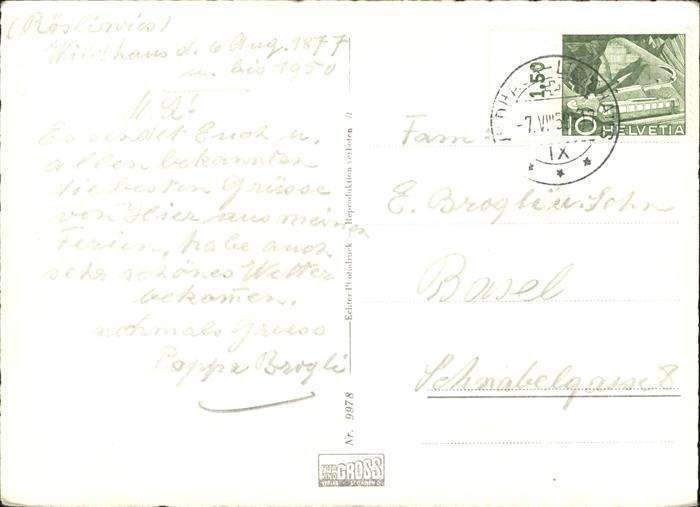 (Rösliwies)
Wildhaus d. 6 Aug. 1877
u. bis 1950
M. L!
Es sendet Euch u.
allen bekannten
die besten Grüsse
von Hier aus meinen
Ferien, habe auch
sehr schönes Wetter
bekommen.
nochmals Gruss
Pappa Brogli
Echter Photodruck Reproduktion verboten
Nr. 9978
GROSS
1.50
10 HELVETIA
-7.VIII.5
IX
Fam
E. Brogli u. Sohn
Basel
Schnabelgasse 8